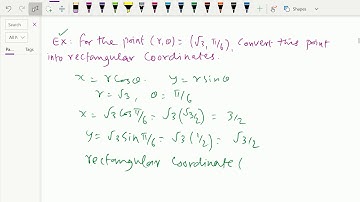 Ex: For the point (r,θ) = (√3, π/6), convert this point
into rectangular coordinates.
x = r cosθ. y = r sinθ
r = √3, θ = π/6
x = √3 cos π/6 = √3 (√3/2) = 3/2
y = √3 sin π/6 = √3 (1/2) = √3/2
rectangular coordinate (